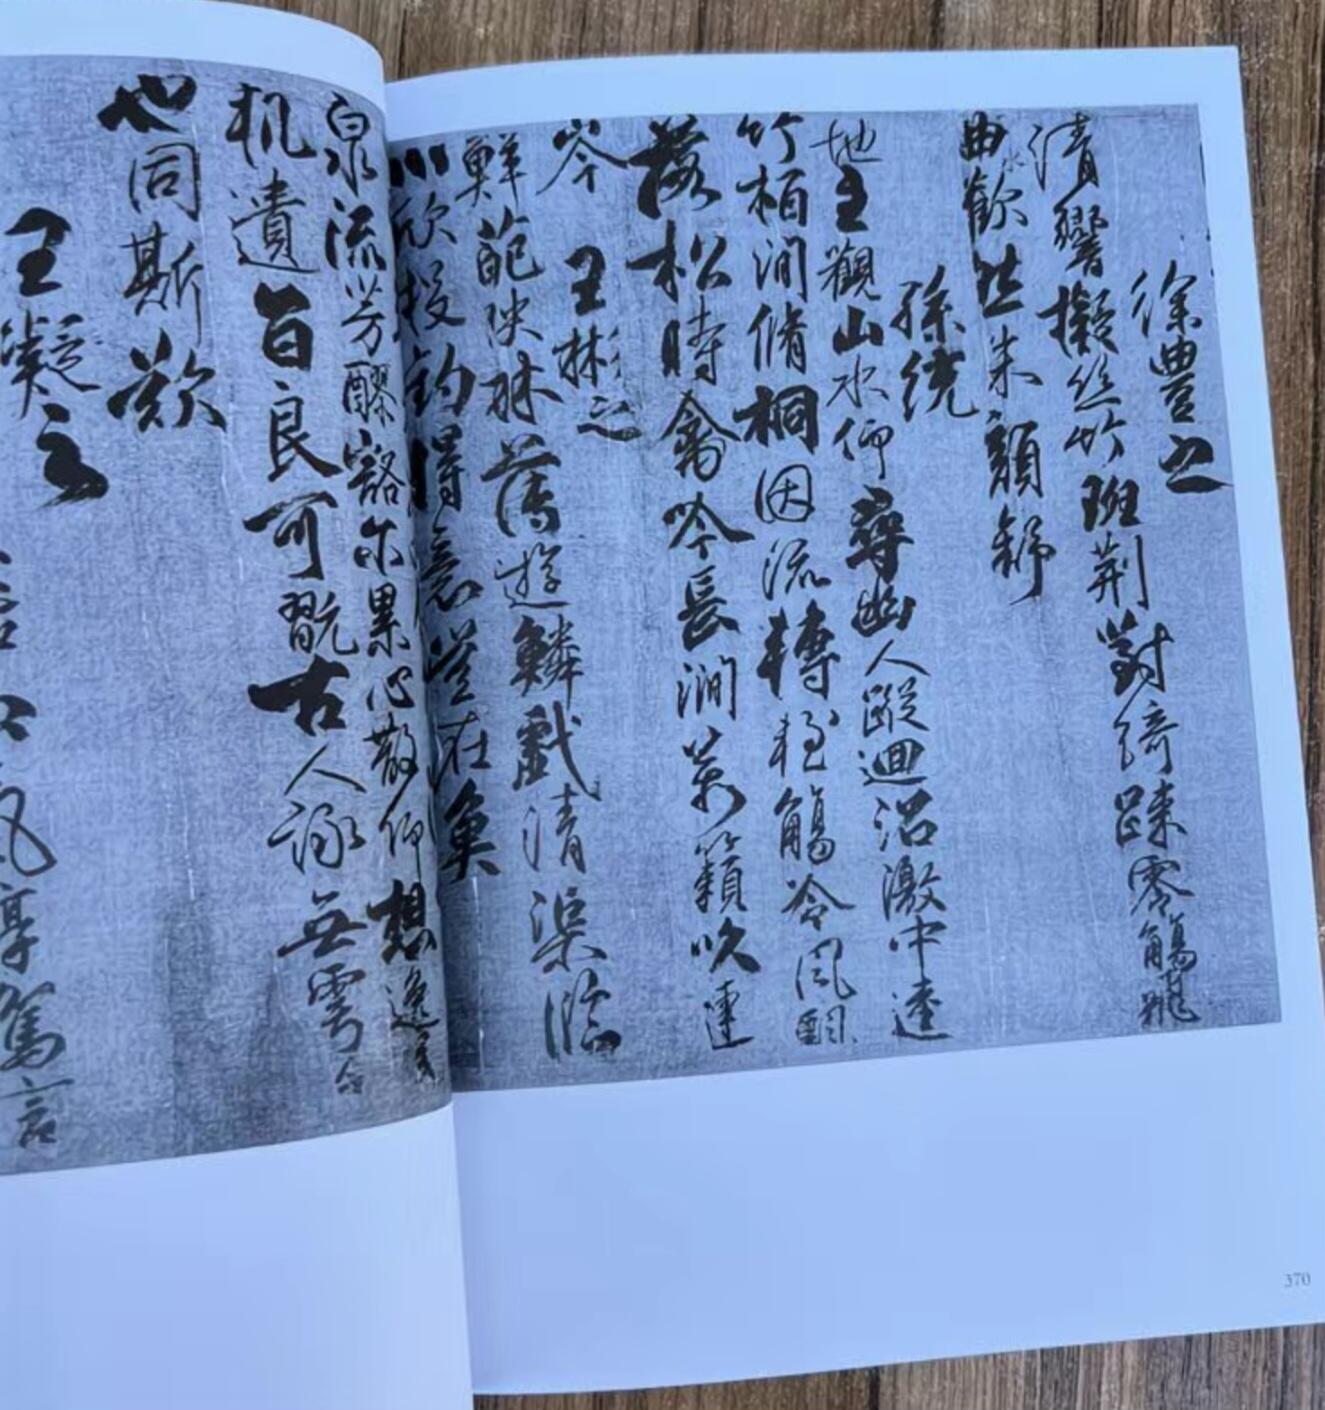 徐豐之
清響擬絲竹班荆對綺疎零觴飛
曲水歡然朱顔舒
孫統
地主觀山水仰尋幽人蹤迴沼激中逵
竹柏澗脩桐因流轉輕觴冷風飄
落松時禽吟長澗萬籟吹連
岑
王彬之
鮮葩映林薄遊鱗戲清渠臨
川欣投釣得意豈在魚
泉流芳醪豁尔累心散仰想逸民
机遺音良可翫古人詠無雩今
也同斯歎
王凝之
370